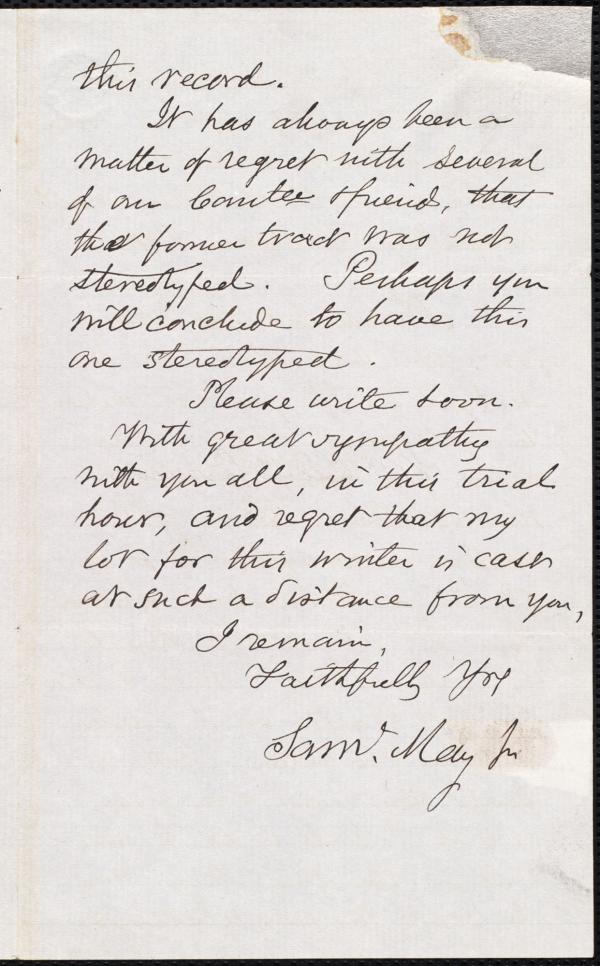 this record.
It has always been a
matter of regret with several
of our Com<sup>tee</sup> & friends, that
the former tract was not
stereotyped. Perhaps you
will conclude to have this
one stereotyped.
Please write soon.
With great sympathy
with you all, in this trial
hour, and regret that my
lot for this winter is cast
at such a distance from you,
I remain,
Faithfully Yrs
Saml. May Jr